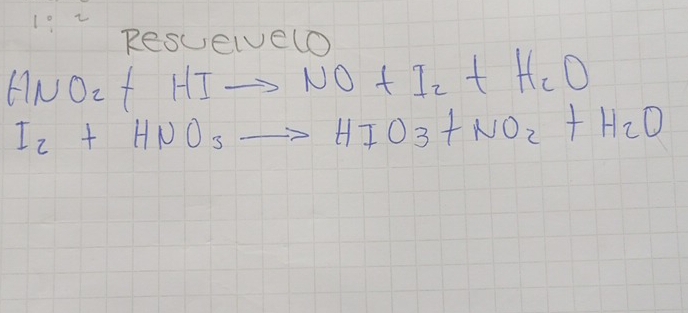 1: 2
RESUELVELO
HNO₂ + HI → NO + I₂ + H₂O
I₂ + HNO₃ → HIO₃ + NO₂ + H₂O